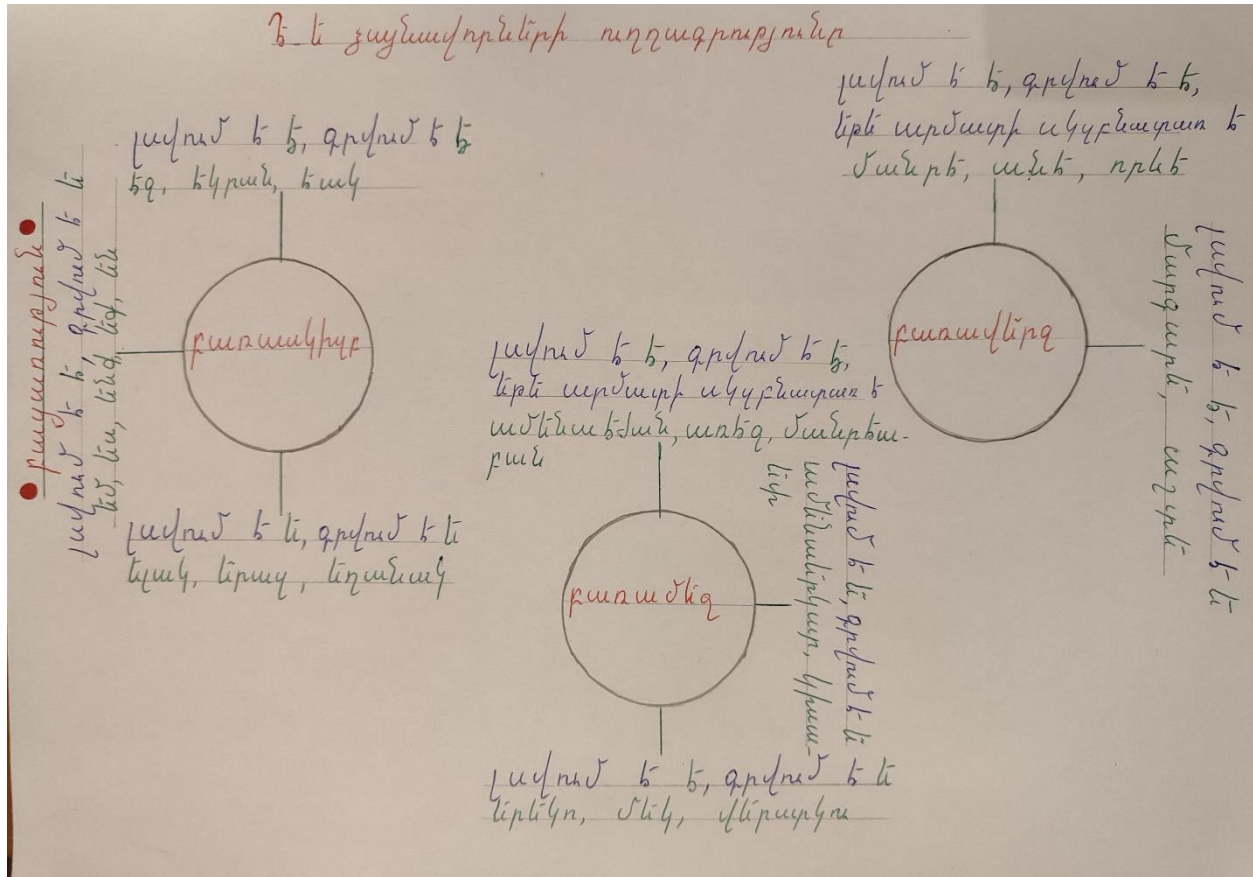 Է և ձայնավորների ուղղագրությունը
լսվում է է, գրվում է է
էզ, էկրան, էակ
բառասկիզբ
• բացառություն •
լսվում է է, գրվում է ե
եմ, ես, ենք, եք, են
լսվում է ե, գրվում է ե
ելակ, երազ, եղանակ
լսվում է է, գրվում է է,
եթե արմատի սկզբնատառ է
ամենաէժան, առէգ, մանրէա-
բան
բառամեջ
լսվում է ե, գրվում է ե
ամենաերկար, կիսա-
եփ
լսվում է է, գրվում է ե
երեկո, մեկ, վերարկու
լսվում է է, գրվում է է,
եթե արմատի սկզբնատառ է
մանրէ, աՆէ, որևէ
բառավերջ
լսվում է է, գրվում է ե
մարգարե, աշտե